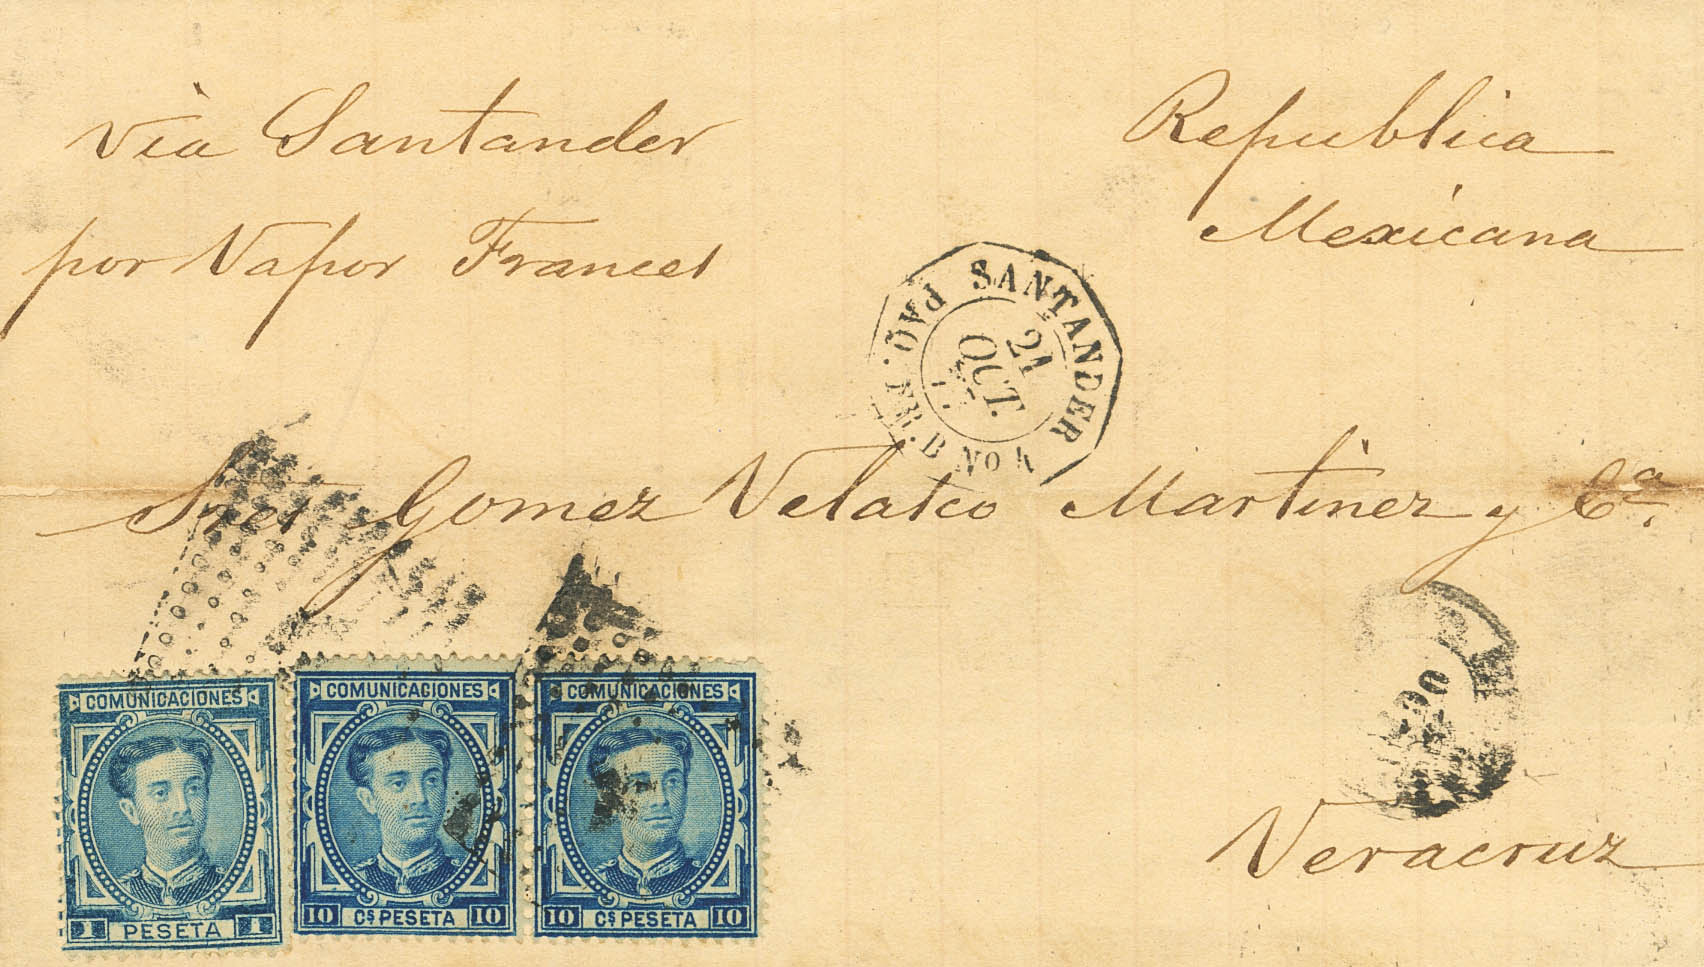 via Santander
por Vapor Frances
Republica
Mexicana
SANTANDER
PAQ. FR. B No 4
21
OCT.
Sres Gomez Velasco Martinez y Cª.
Veracruz
COMUNICACIONES
1 PESETA 1
COMUNICACIONES
10 Cs PESETA 10
COMUNICACIONES
10 Cs PESETA 10